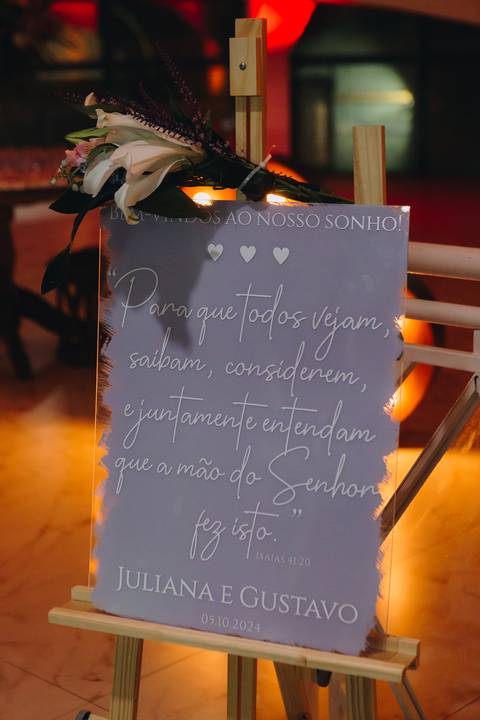 BEM-VINDOS AO NOSSO SONHO!
"Para que todos vejam,
saibam, considerem,
e juntamente entendam
que a mão do Senhor
fez isto."
ISAÍAS 41:20
JULIANA E GUSTAVO
05.10.2024